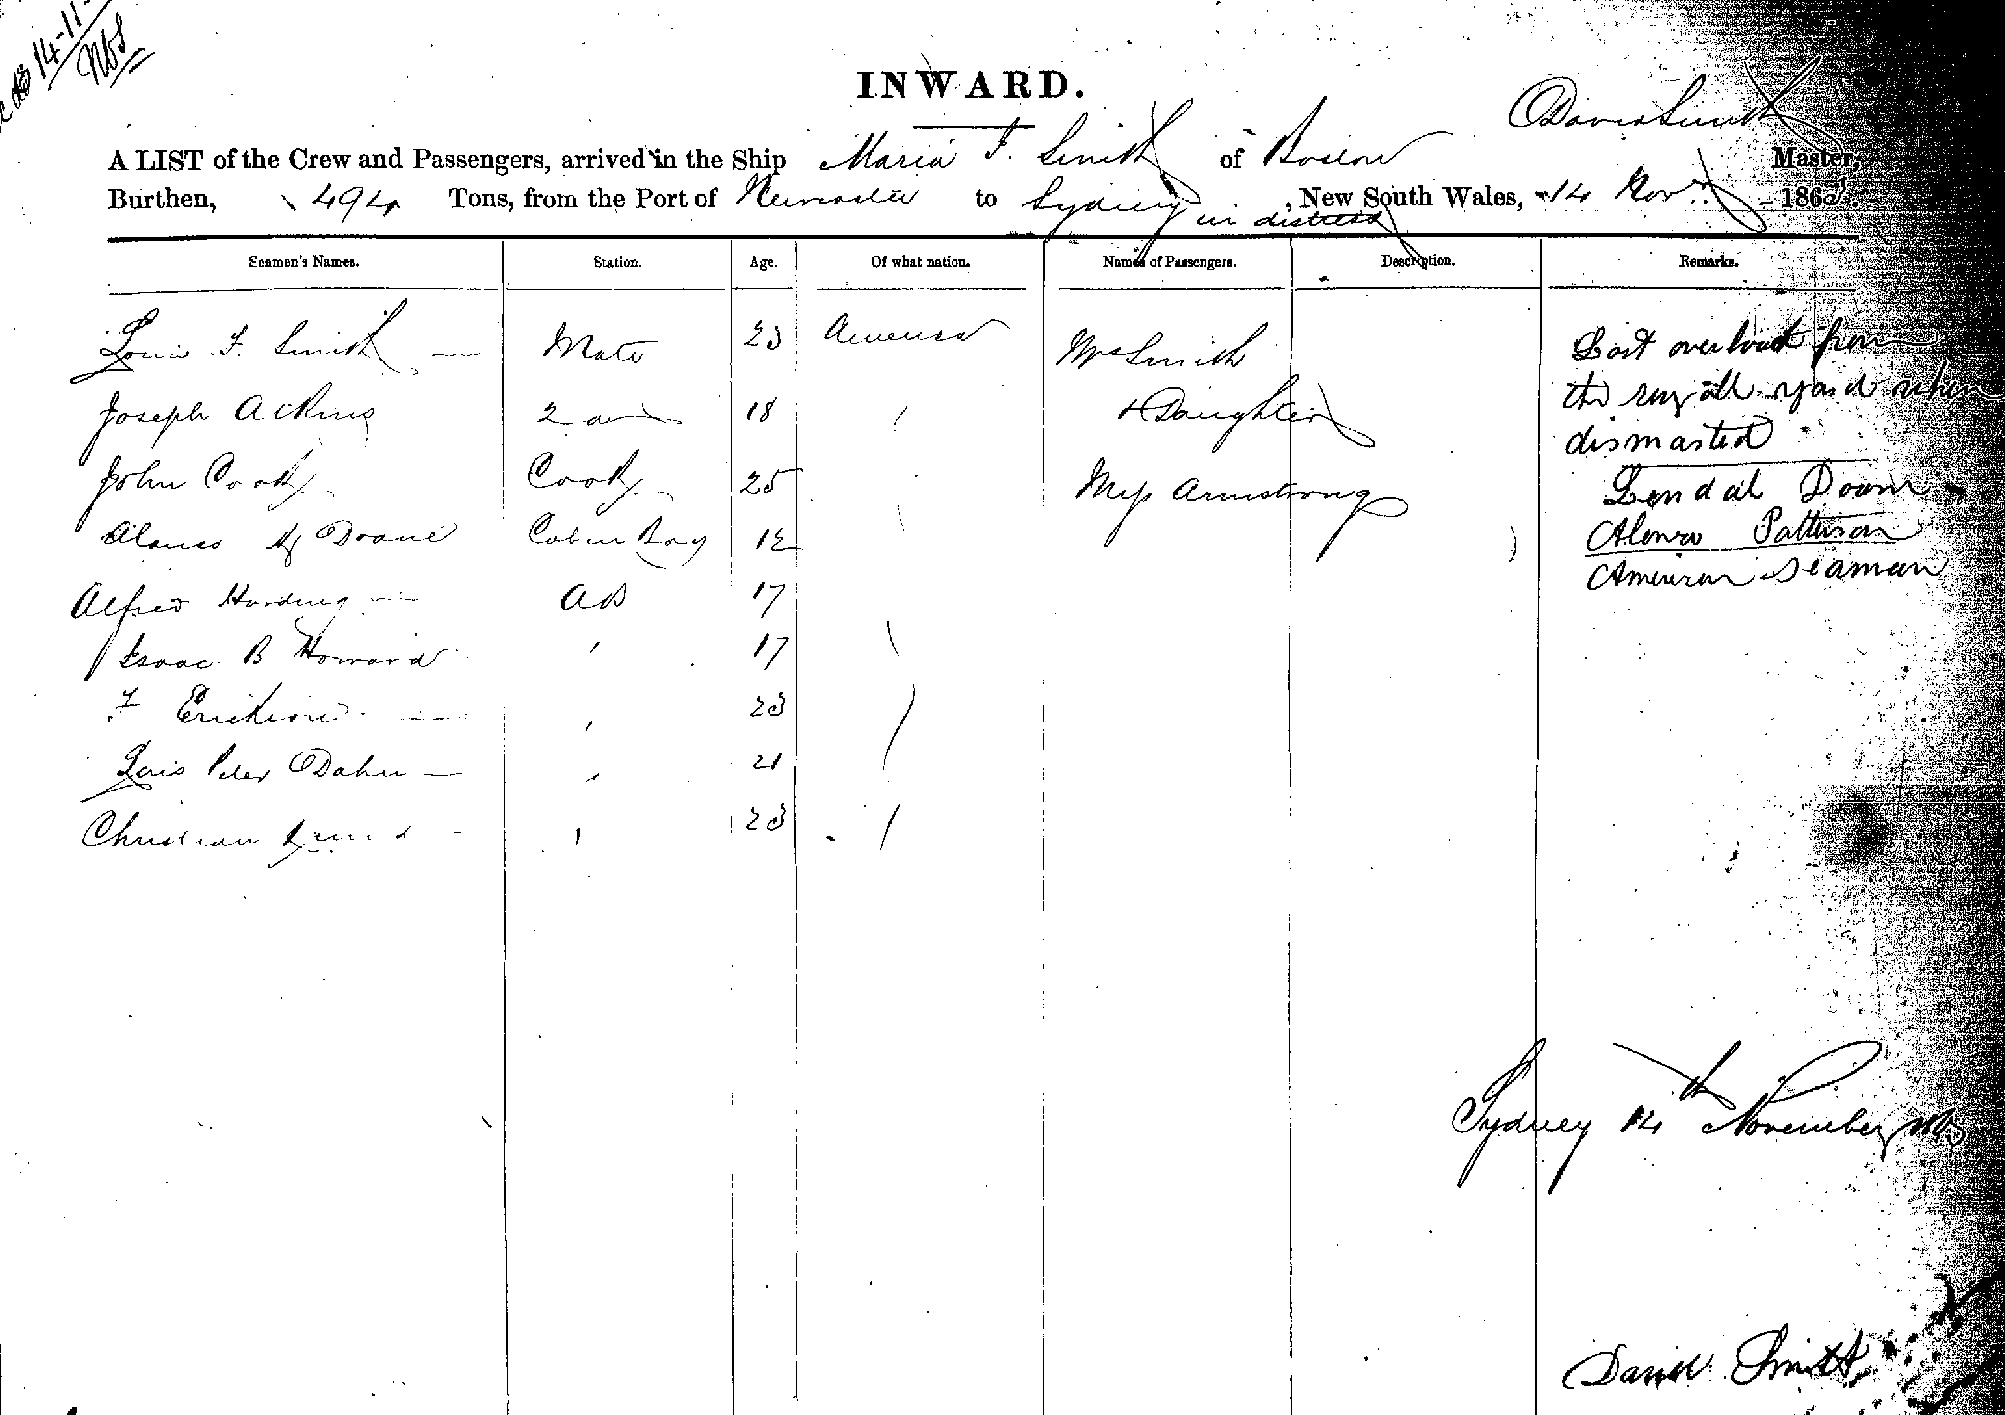 14-11-
INWARD.
David Smith
A LIST of the Crew and Passengers, arrived in the Ship Maria F. Smith of Boston Master,
Burthen, 494 Tons, from the Port of Newcastle to Sydney in distress, New South Wales, 14 Novr 1863.
Seamen's Names. Station. Age. Of what nation. Names of Passengers. Description. Remarks.
Louis F. Smith Mate 23 America Mrs Smith Lost overboard from
Joseph Atkins 2 do 18 & Daughter the royall yard when
dismasted
John Cook Cook 25 Miss Armstrong Lendal Doane
Alonzo Doane Cabin Boy 12 Alonzo Patterson
Alfred Harding AB 17 American Seaman
Isaac B Howard 17
F Erickson 23
Louis Peter Dahn 21
Christian 23
Sydney 14th November
David Smith